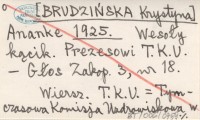 o [BRUDZIŃSKA Krystyna]
Ananke 1925. Wesoły
kącik. Prezesowi T.K.U.
— Głos Zakop. 3, nr 18.
Wiersz. T.K.U. = Tym-
czasowa Komisja Uzdrowiskowa